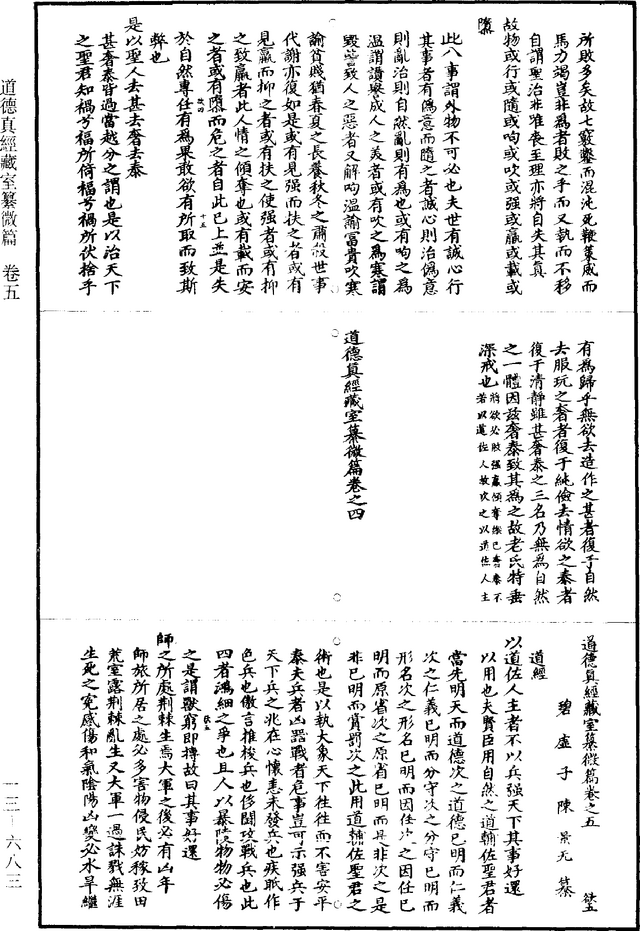 所敗多矣故七竅鑿而混沌死鞭策威而
馬力竭豈非為者敗之乎而又執而不移
自謂聖治非唯喪至理亦將自失其真
故物或行或隨或呴或吹或强或羸或載或
隳
此八事謂外物不可必也夫世有誠心行
其事者有偽意而隨之者誠心則治偽意
則亂治則自然亂則有為也或有呴之為
温謂讚譽成人之美者或有吹之為寒謂
毀訾致人之惡者又解呴温諭冨貴吹寒
諭貧賤猶春夏之長養秋冬之肅殺世事
代謝亦復如是或有見强而扶之者或有
見羸而抑之者或有扶之使强者或有抑
之致羸者此人情之傾奪也或有載而安
之者或有隳而危之者自此已上並是失
於自然專任有為果敢欲有所取而致斯
弊也
是以聖人去甚去奢去泰
甚奢泰皆過當越分之謂也是以治天下
之聖君知禍兮福所倚福兮禍所伏捨乎
有為歸乎無欲去造作之甚者復于自然
去服玩之奢者復于純儉去情欲之泰者
復于清靜雖甚奢泰之三名乃無為自然
之一體因兹奢泰致其為之故老氏特垂
深戒也
道德真經藏室纂微篇卷之四
道德真經藏室纂微篇卷之五
碧虛子陳景元纂
道經
以道佐人主者不以兵强天下其事好還
以用也夫賢臣用自然之道輔佐聖君者
當先明天而道德次之道德已明而仁義
次之仁義已明而分守次之分守已明而
形名次之形名已明而因任次之因任已
明而原省次之原省已明而是非次之是
非已明而賞罰次之此用道輔佐聖君之
術也是以執大象天下往往而不害安平
泰夫兵者凶器戰者危事豈可示强兵于
天下兵之兆在心懷恚未發兵也疾眂作
色兵也傲言推梭兵也侈鬪攻戰兵也此
四者鴻細之爭也且人以暴陵物物必傷
之是謂獸窮即摶故曰其事好還
師之所處荆棘生焉大軍之後必有凶年
師旅所居之處必多害物侵民妨稼致田
荒室露荆棘亂生又大軍一過誅戮無涯
生死之寃感傷和氣隂陽凶變必水旱繼
道德真經藏室纂微篇 卷五
一三—六八三